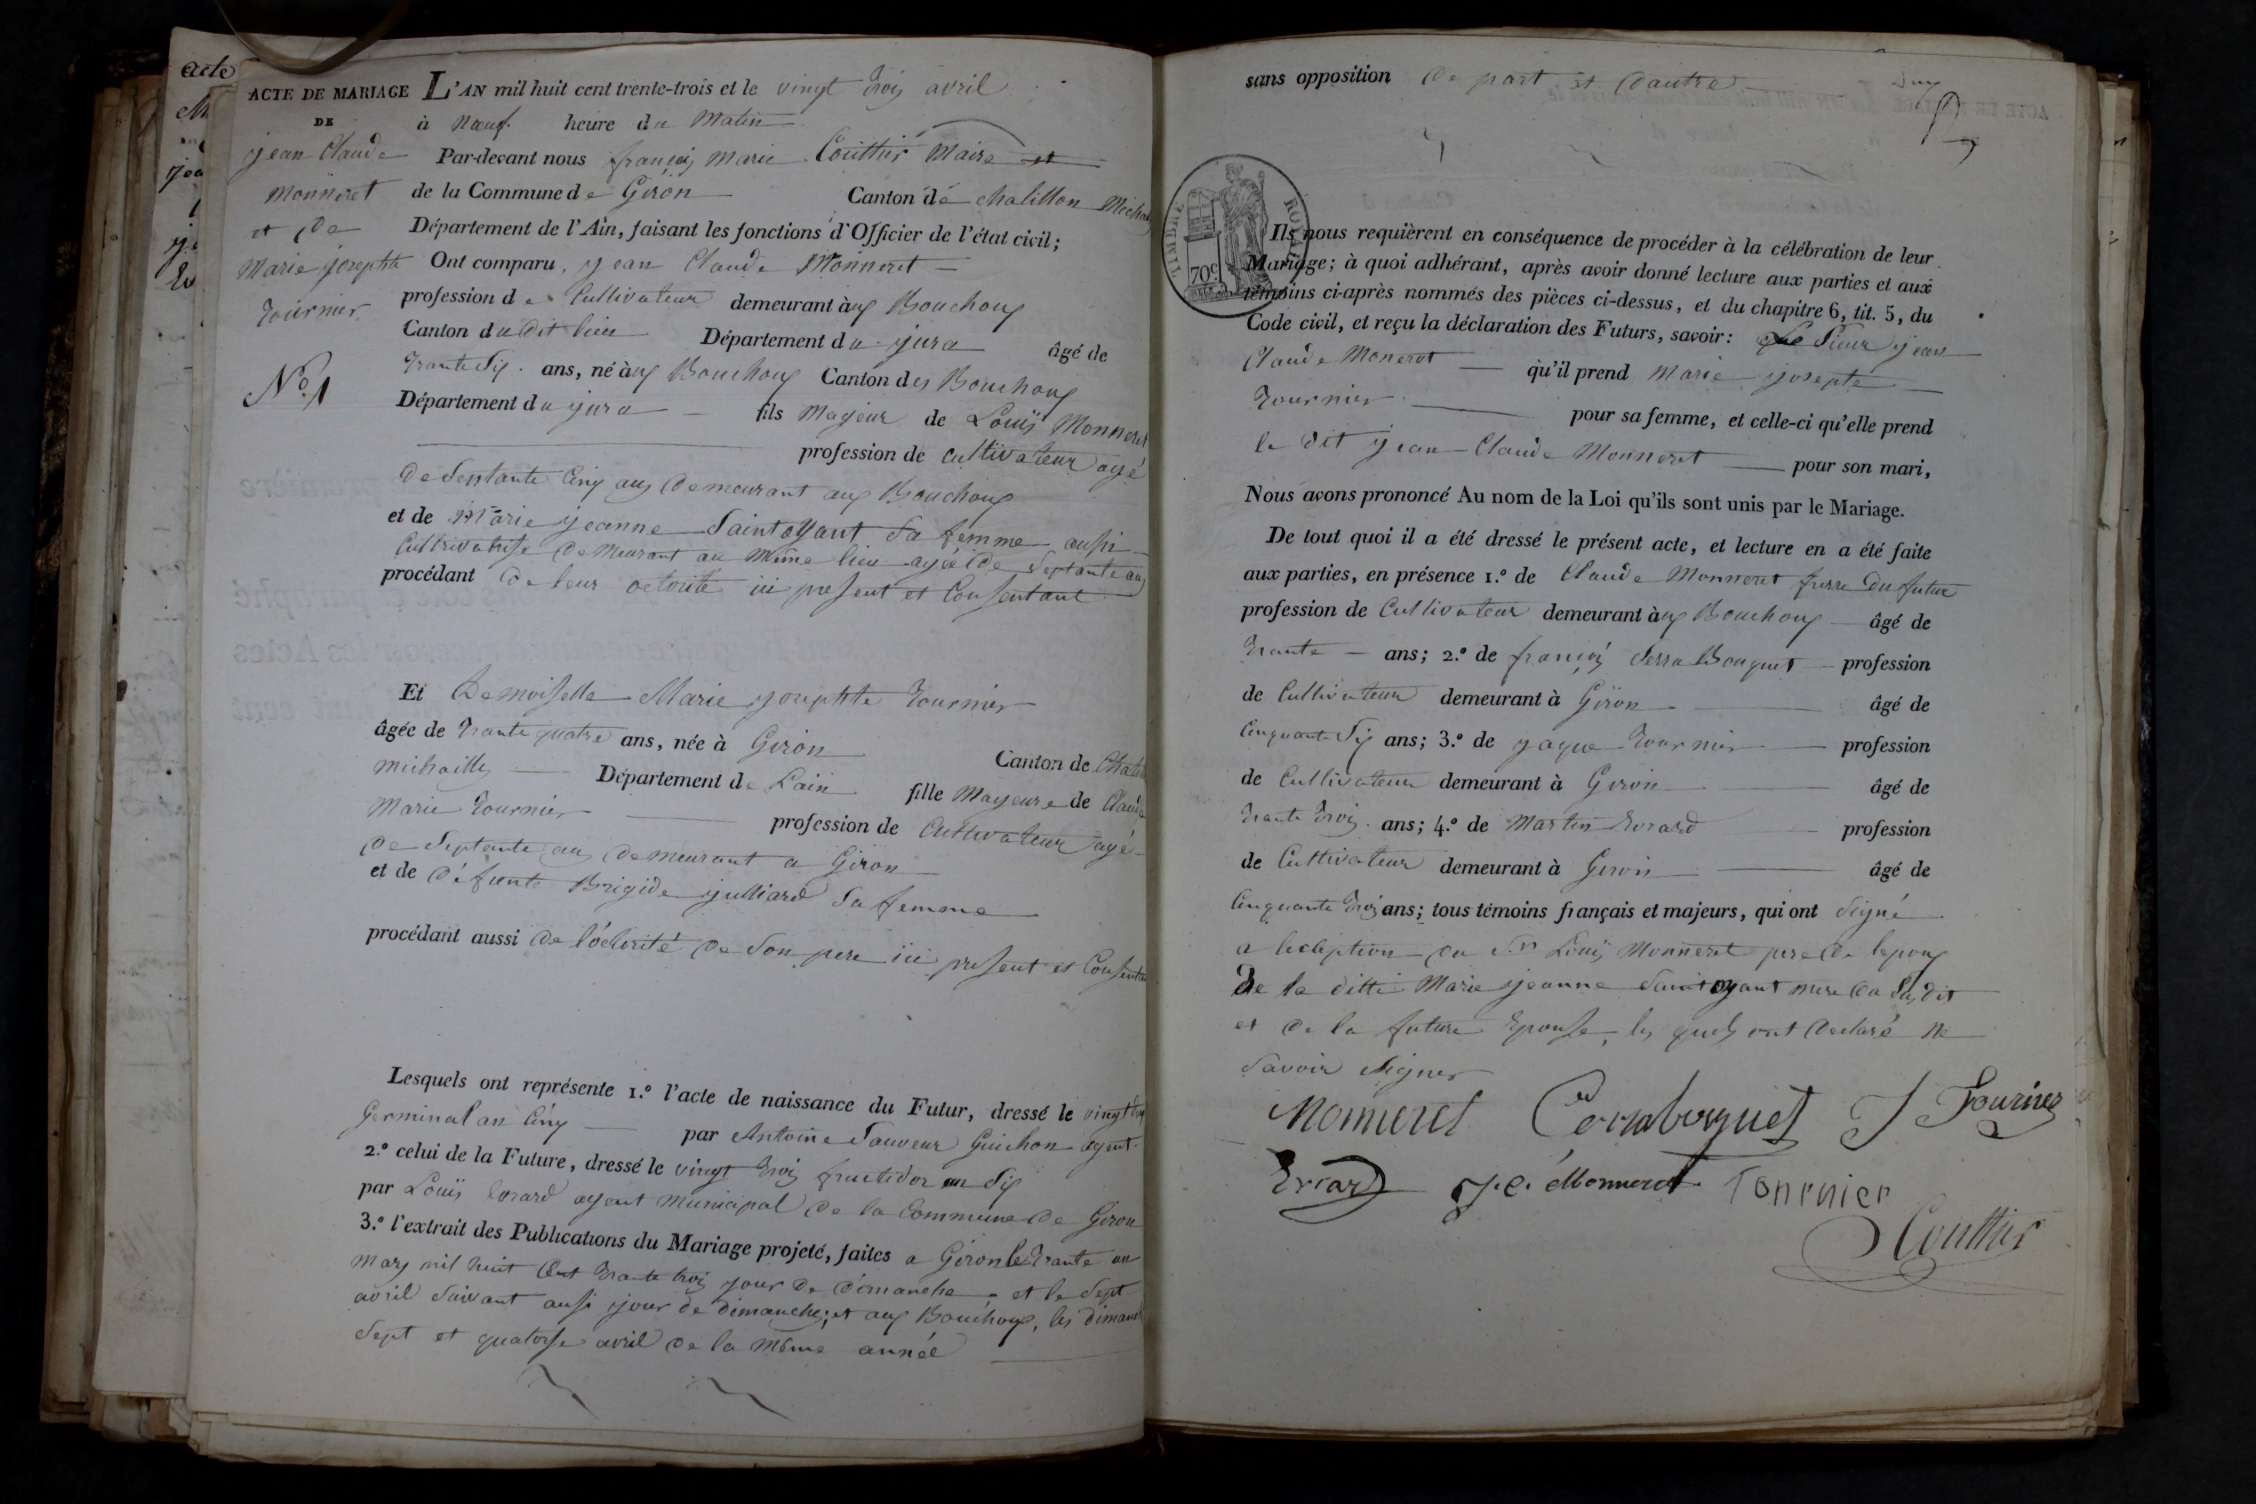 acte
ACTE DE MARIAGE
DE
jean Claude
Monneret
et de
Marie josephte
Tournier
No. 1
L'AN mil huit cent trente-trois et le vingt trois avril
à Noeuf heure du Matin
Par-devant nous françois Marie Coutthir Maire
de la Commune de Giron Canton de chatillon Michail
Département de l'Ain, faisant les fonctions d'Officier de l'état civil;
Ont comparu, jean Claude Monneret
profession de Cultivateur demeurant àux Bouchoux
Canton du dit lieu Département du jura âgé de
Trante Six ans, né àux Bouchoux Canton des Bouchoux
Département du jura fils Majeur de Louïs Monneret
profession de cultivateur agé
de Septante Cinq ans demeurant aux Bouchoux
et de Marie jeanne Saintoyant Sa femme aussi
Cultivatrise demeurant au Même lieu agée de Septante ans
procédant de leur octorité ici present et Consentant
Et Demoiselle Marie josephte Tournier
âgée de Trante quatre ans, née à Giron Canton de Chatill
michaille Département de Lain fille Mageure de Claude
Marie Tournier profession de Cultivateur agé
de Septante ans demeurant a Giron
et de défunte Brigide julliard Sa femme
procédant aussi de l'octorité de Son pere ici present et Consentan
Lesquels ont représente 1.º l'acte de naissance du Futur, dressé le vingt
Germinal an Cinq par Antoine Sauveur Guichon agent
2.º celui de la Future, dressé le vingt trois fructidor an Six
par Louïs Evrard agent municipal de la Commune de Giron
3.º l'extrait des Publications du Mariage projeté, faites a Giron le Trante un
Mars mil huit Cent Trante trois jour de dimanche et le Sept
avril Suivant aussi jour de dimanche, et aux Bouchoux, les dimanc
Sept et quatorse avril de la Même année
sans opposition de part et dautre
TIMBRE ROYAL
70c
Ils nous requièrent en conséquence de procéder à la célébration de leur
Mariage; à quoi adhérant, après avoir donné lecture aux parties et aux
témoins ci-après nommés des pièces ci-dessus, et du chapitre 6, tit. 5, du
Code civil, et reçu la déclaration des Futurs, savoir: Le Sieur jean
Claude Moneret qu'il prend Marie josepte
Tournier pour sa femme, et celle-ci qu'elle prend
le dit jean Claude Monneret pour son mari,
Nous avons prononcé Au nom de la Loi qu'ils sont unis par le Mariage.
De tout quoi il a été dressé le présent acte, et lecture en a été faite
aux parties, en présence 1.º de Claude Monneret frerre du futur
profession de Cultivateur demeurant àux Bouchoux âgé de
Trante ans; 2.º de françois Serra Bouquet profession
de Cultivateur demeurant à Giron âgé de
Cinquante Six ans; 3.º de jaque Tournier profession
de Cultivateur demeurant à Giron âgé de
Trante Trois ans; 4.º de Martin Evrard profession
de Cultivateur demeurant à Giron âgé de
Cinquante Trois ans; tous témoins français et majeurs, qui ont Signé
a lecéption du Sr Louïs Monneret pere de lepoux
De la ditte Marie jeanne Saintoyant mere du Susdit
et de la future Epouse, les quels ont declaré ne
Savoir Signer
Monneret Cerraboyuet J Tournier
Evrard J. C. Monneret Tournier
Coutthir